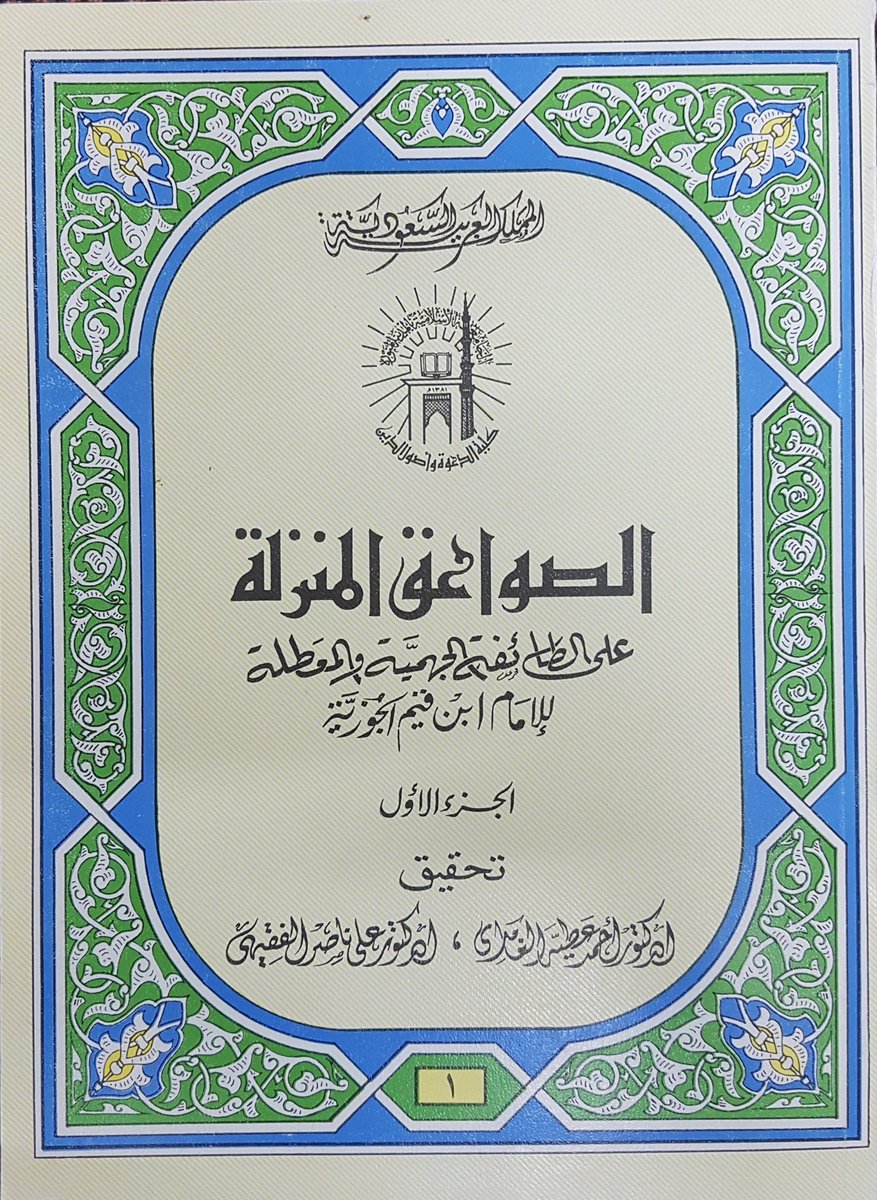 المملكة العربية السعودية
الجامعة الإسلامية بالمدينة المنورة
١٣٨١هـ
كلية الدعوة وأصول الدين
الصواعق المنزلة
على الطائفة الجهمية والمعطلة
للإمام ابن قيم الجوزية
الجزء الأول
تحقيق
الدكتور أحمد عطية الغامدي ، الدكتور علي ناصر الفقيهي
١